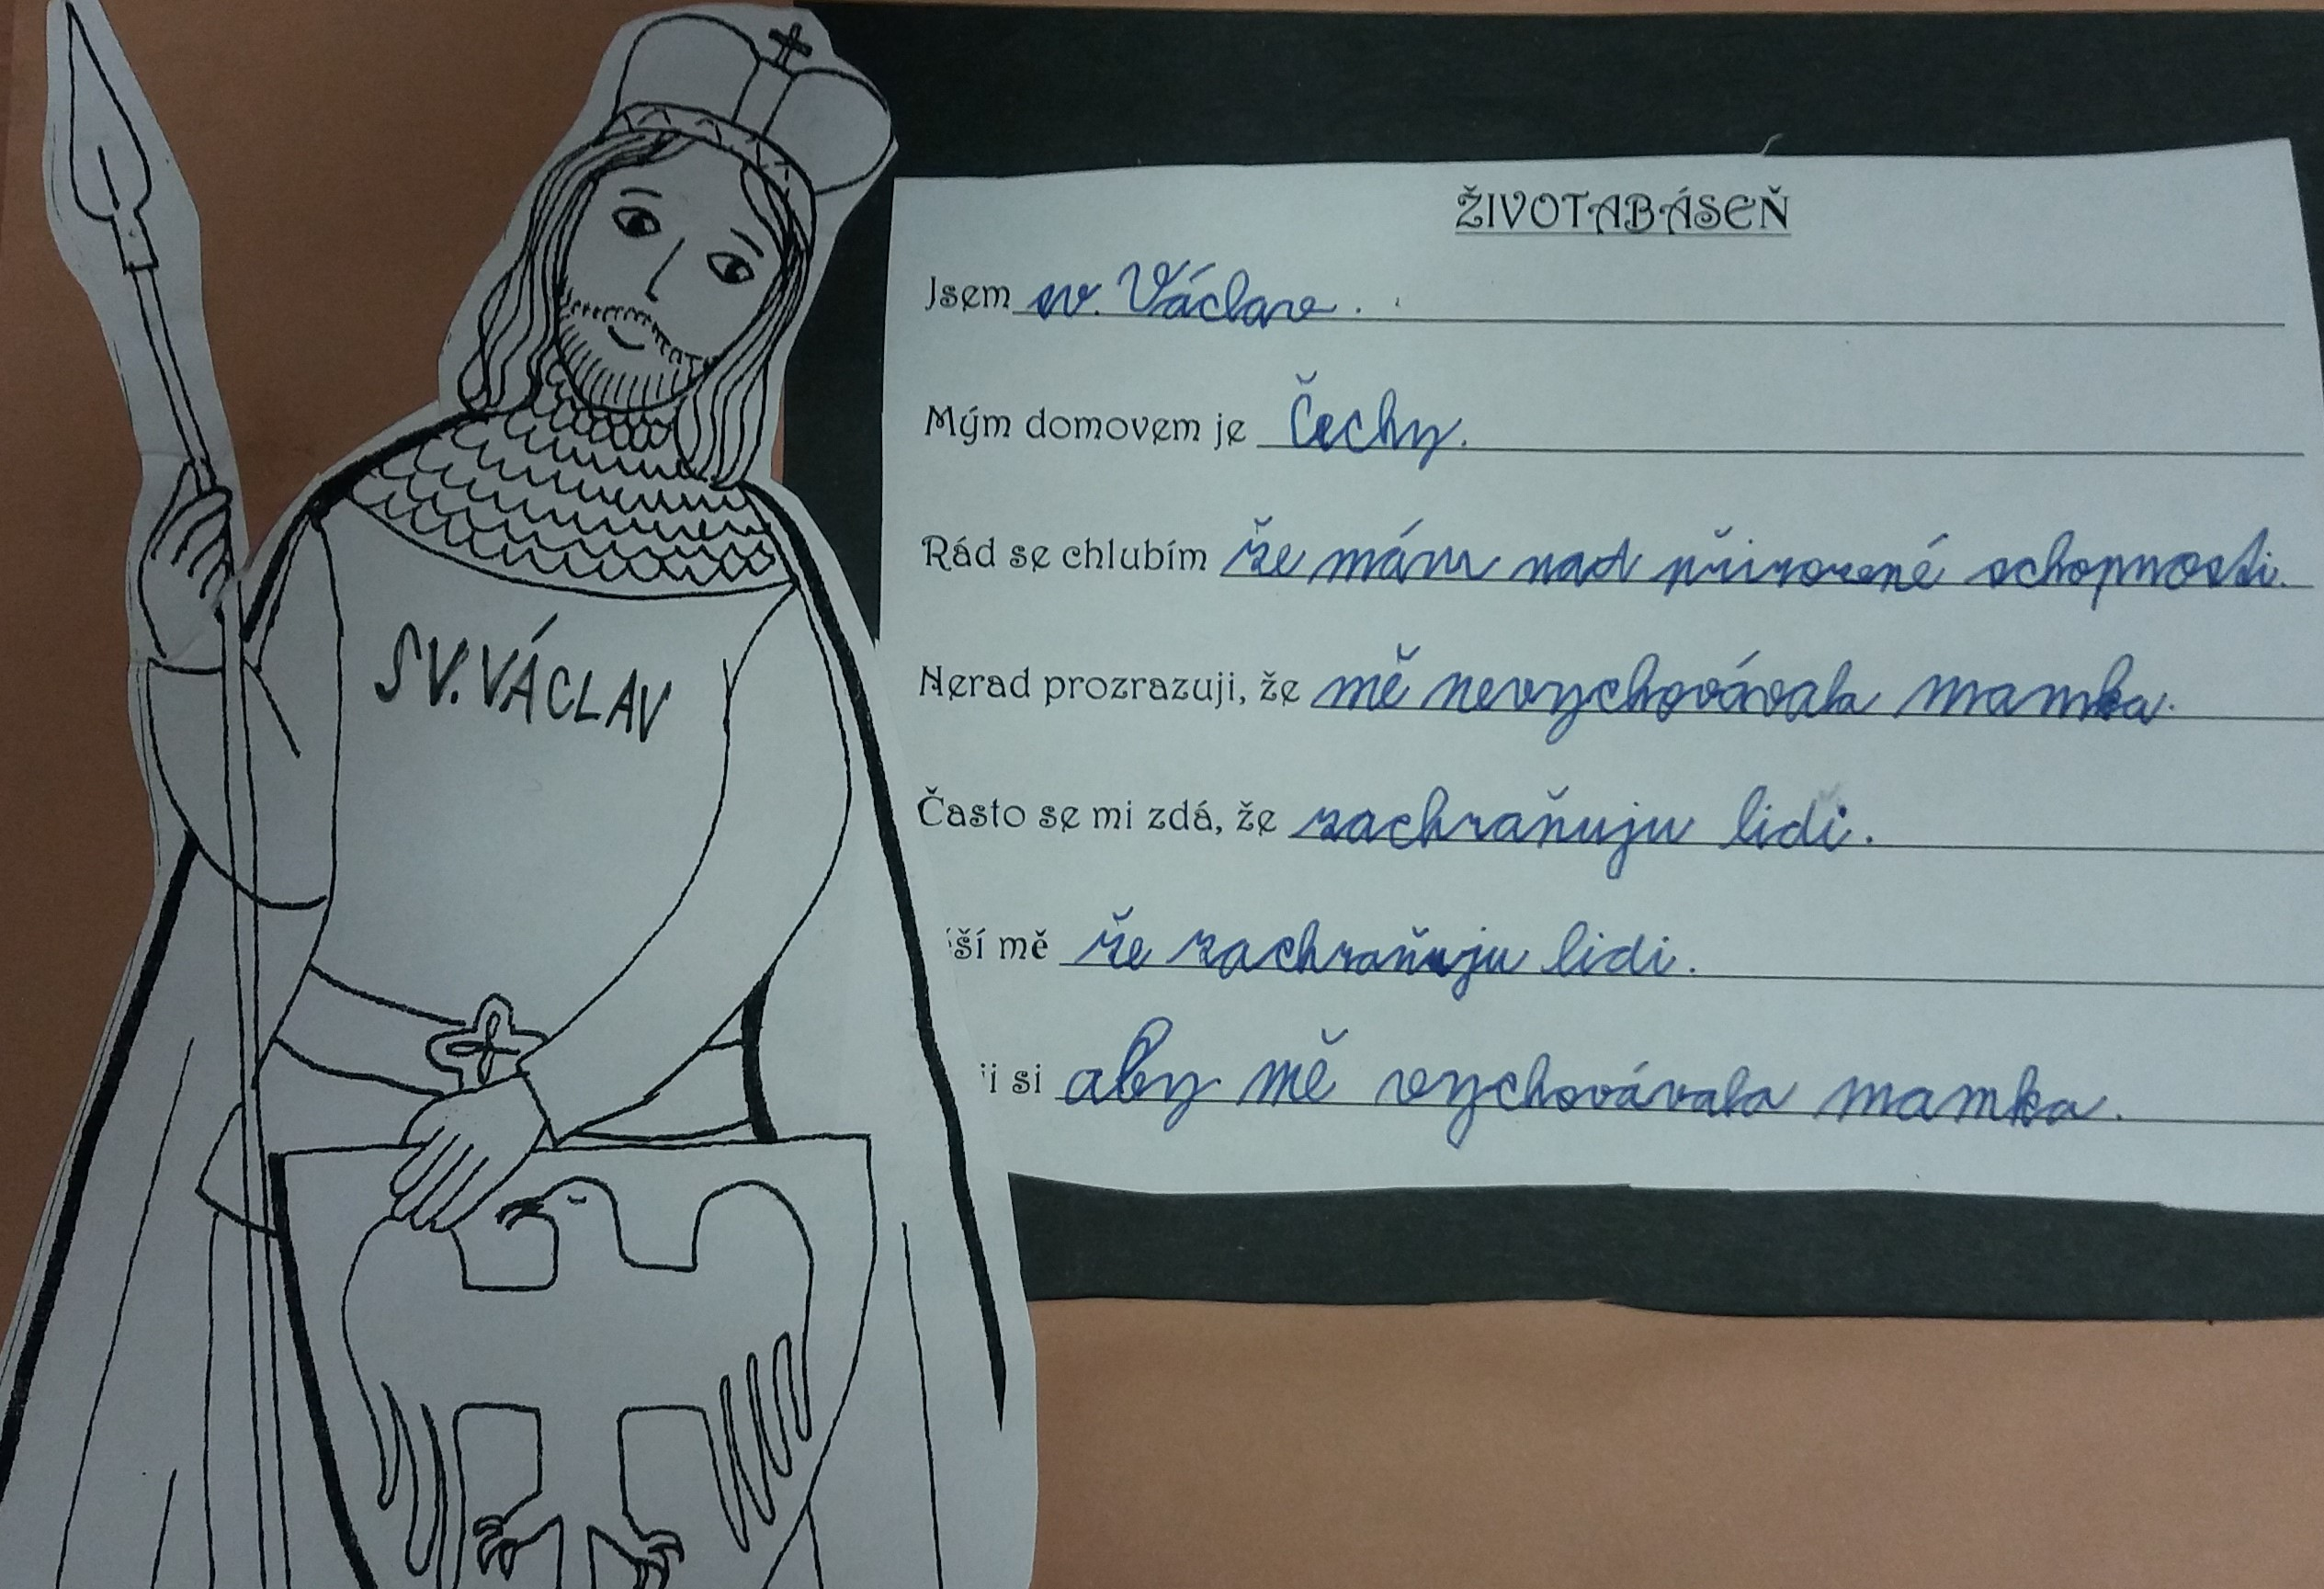 ŽIVOTABÁSEŇ
Jsem sv. Václav.
Mým domovem je Čechy.
Rád se chlubím že mám nad přirozené schopnosti.
SV. VÁCLAV
Nerad prozrazuji, že mě nevychovávala mamka.
Často se mi zdá, že zachraňuju lidi.
ší mě že zachraňuju lidi.
i si aby mě vychovávala mamka.